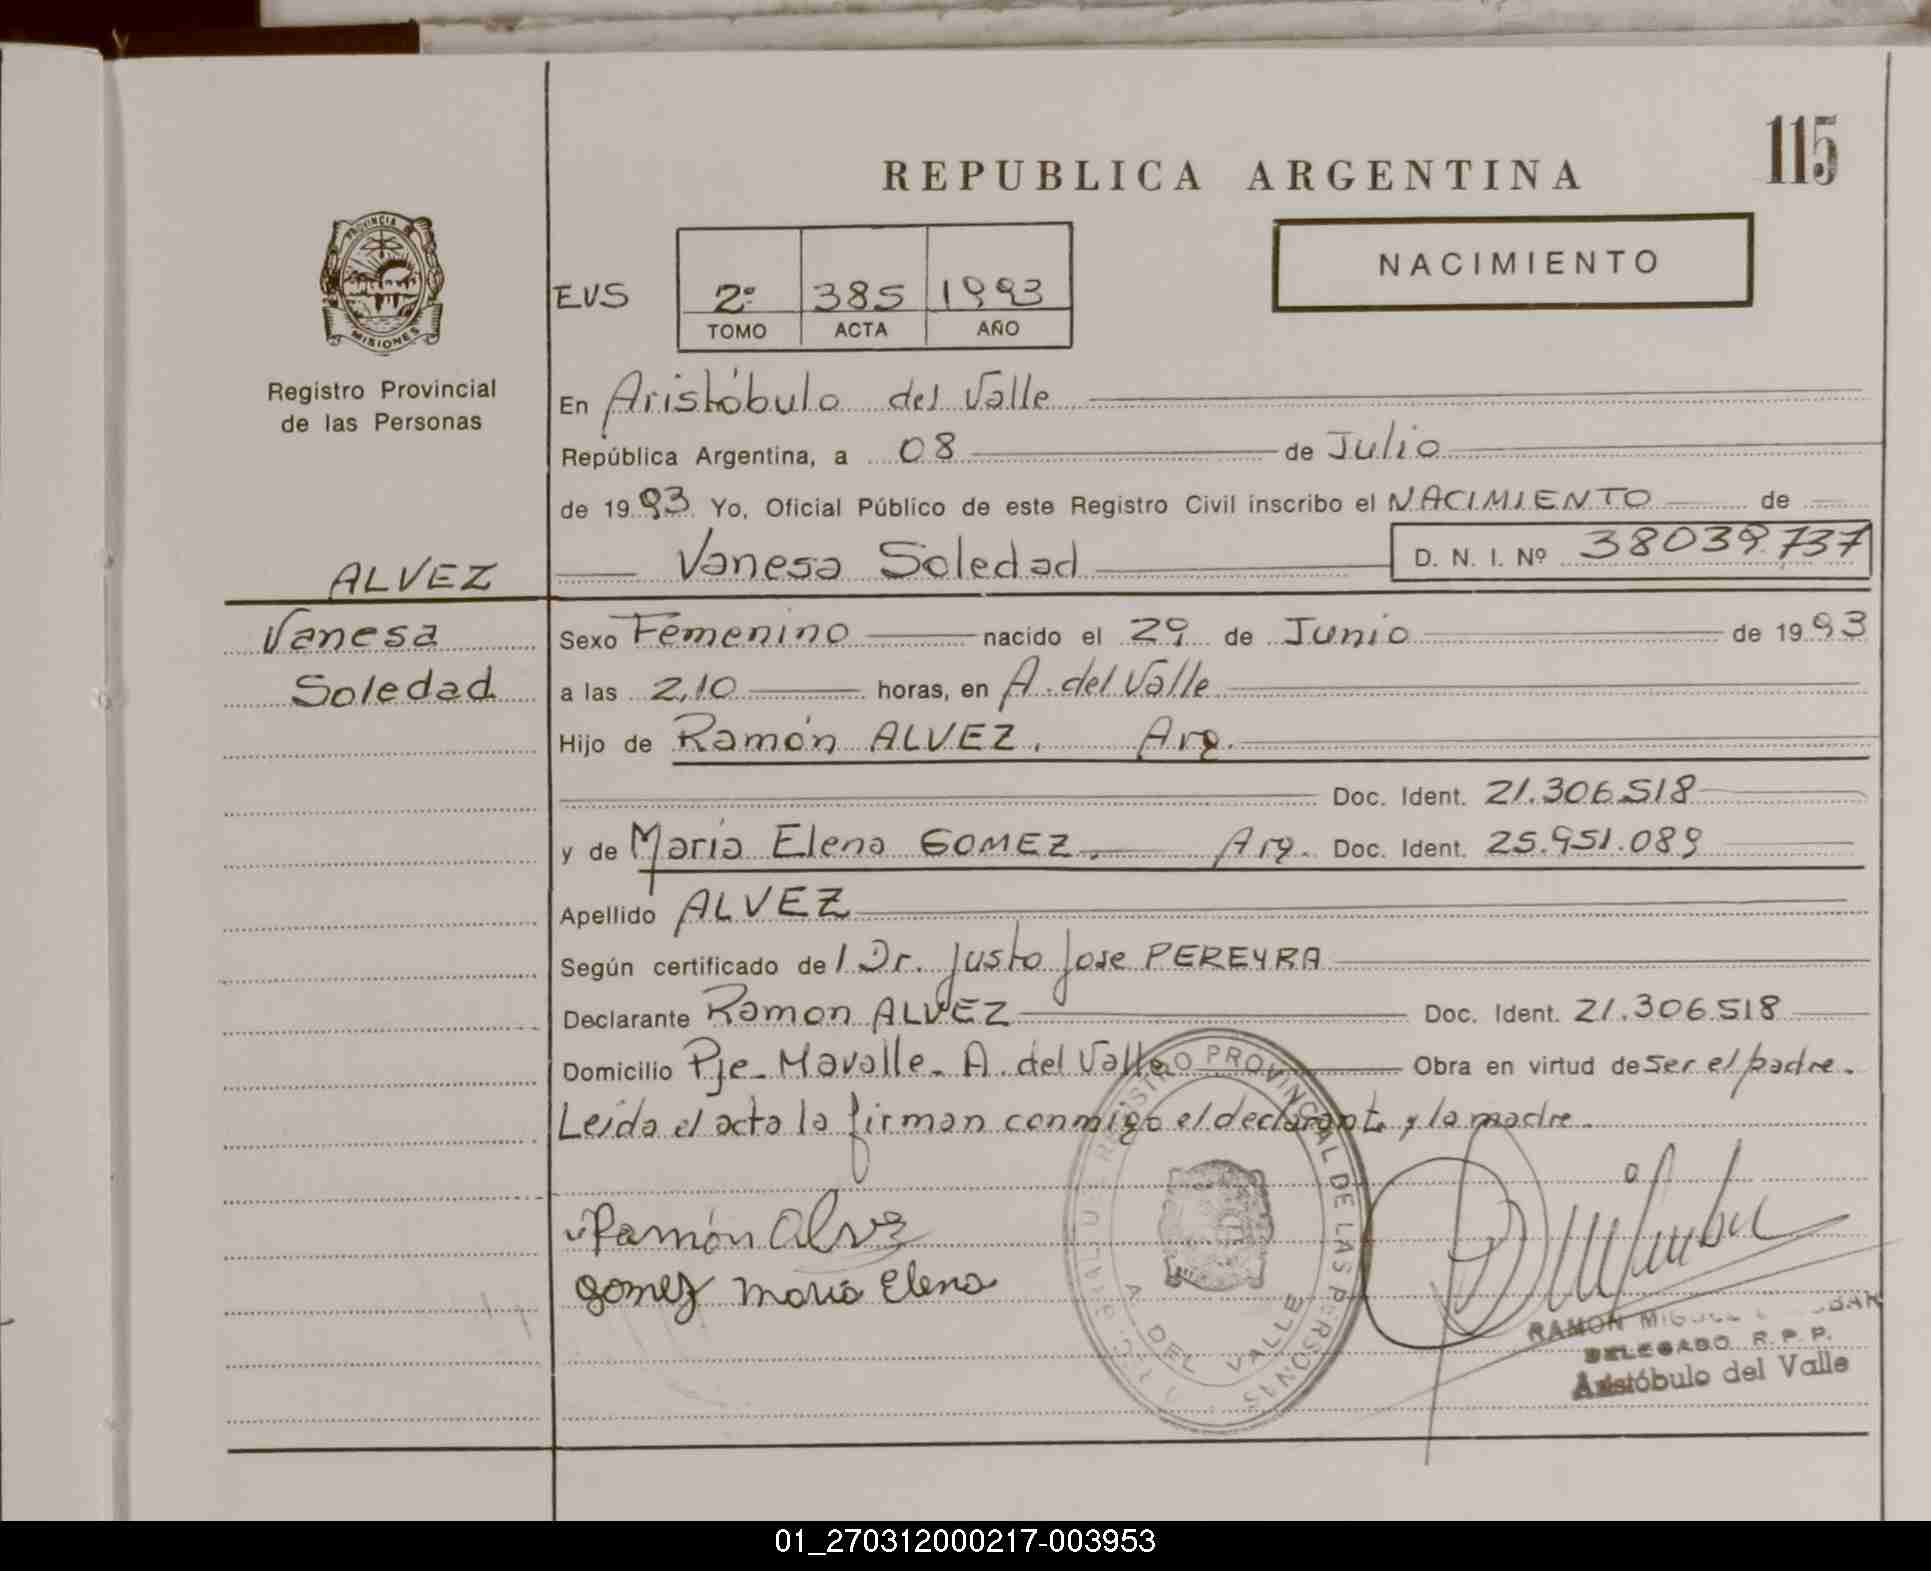 115
REPUBLICA ARGENTINA
NACIMIENTO
PROVINCIA
MISIONES
Registro Provincial
de las Personas
EVS
2º 385 1993
TOMO ACTA AÑO
En Aristóbulo del Valle
República Argentina, a 08 de Julio
de 1993 Yo, Oficial Público de este Registro Civil inscribo el NACIMIENTO de
Vanesa Soledad D. N. I. Nº 38039737
ALVEZ
Vanesa
Soledad
Sexo Femenino nacido el 29 de Junio de 1993
a las 2,10 horas, en A. del Valle
Hijo de Ramón ALVEZ. Arg.
Doc. Ident. 21.306.518
y de María Elena GOMEZ. Arg. Doc. Ident. 25.951.089
Apellido ALVEZ
Según certificado del Dr. Justo Jose PEREYRA
Declarante Ramon ALVEZ Doc. Ident. 21.306.518
Domicilio Pje. Mavalle. A. del Valle Obra en virtud de ser el padre.
Leida el acta la firman conmigo el declarante y la madre.
Ramón Alvez
gomez maria Elena
REGISTRO PROVINCIAL DE LAS PERSONAS
A. DEL VALLE
RAMON
DELEGADO R. P. P.
Aristóbulo del Valle
01_270312000217-003953